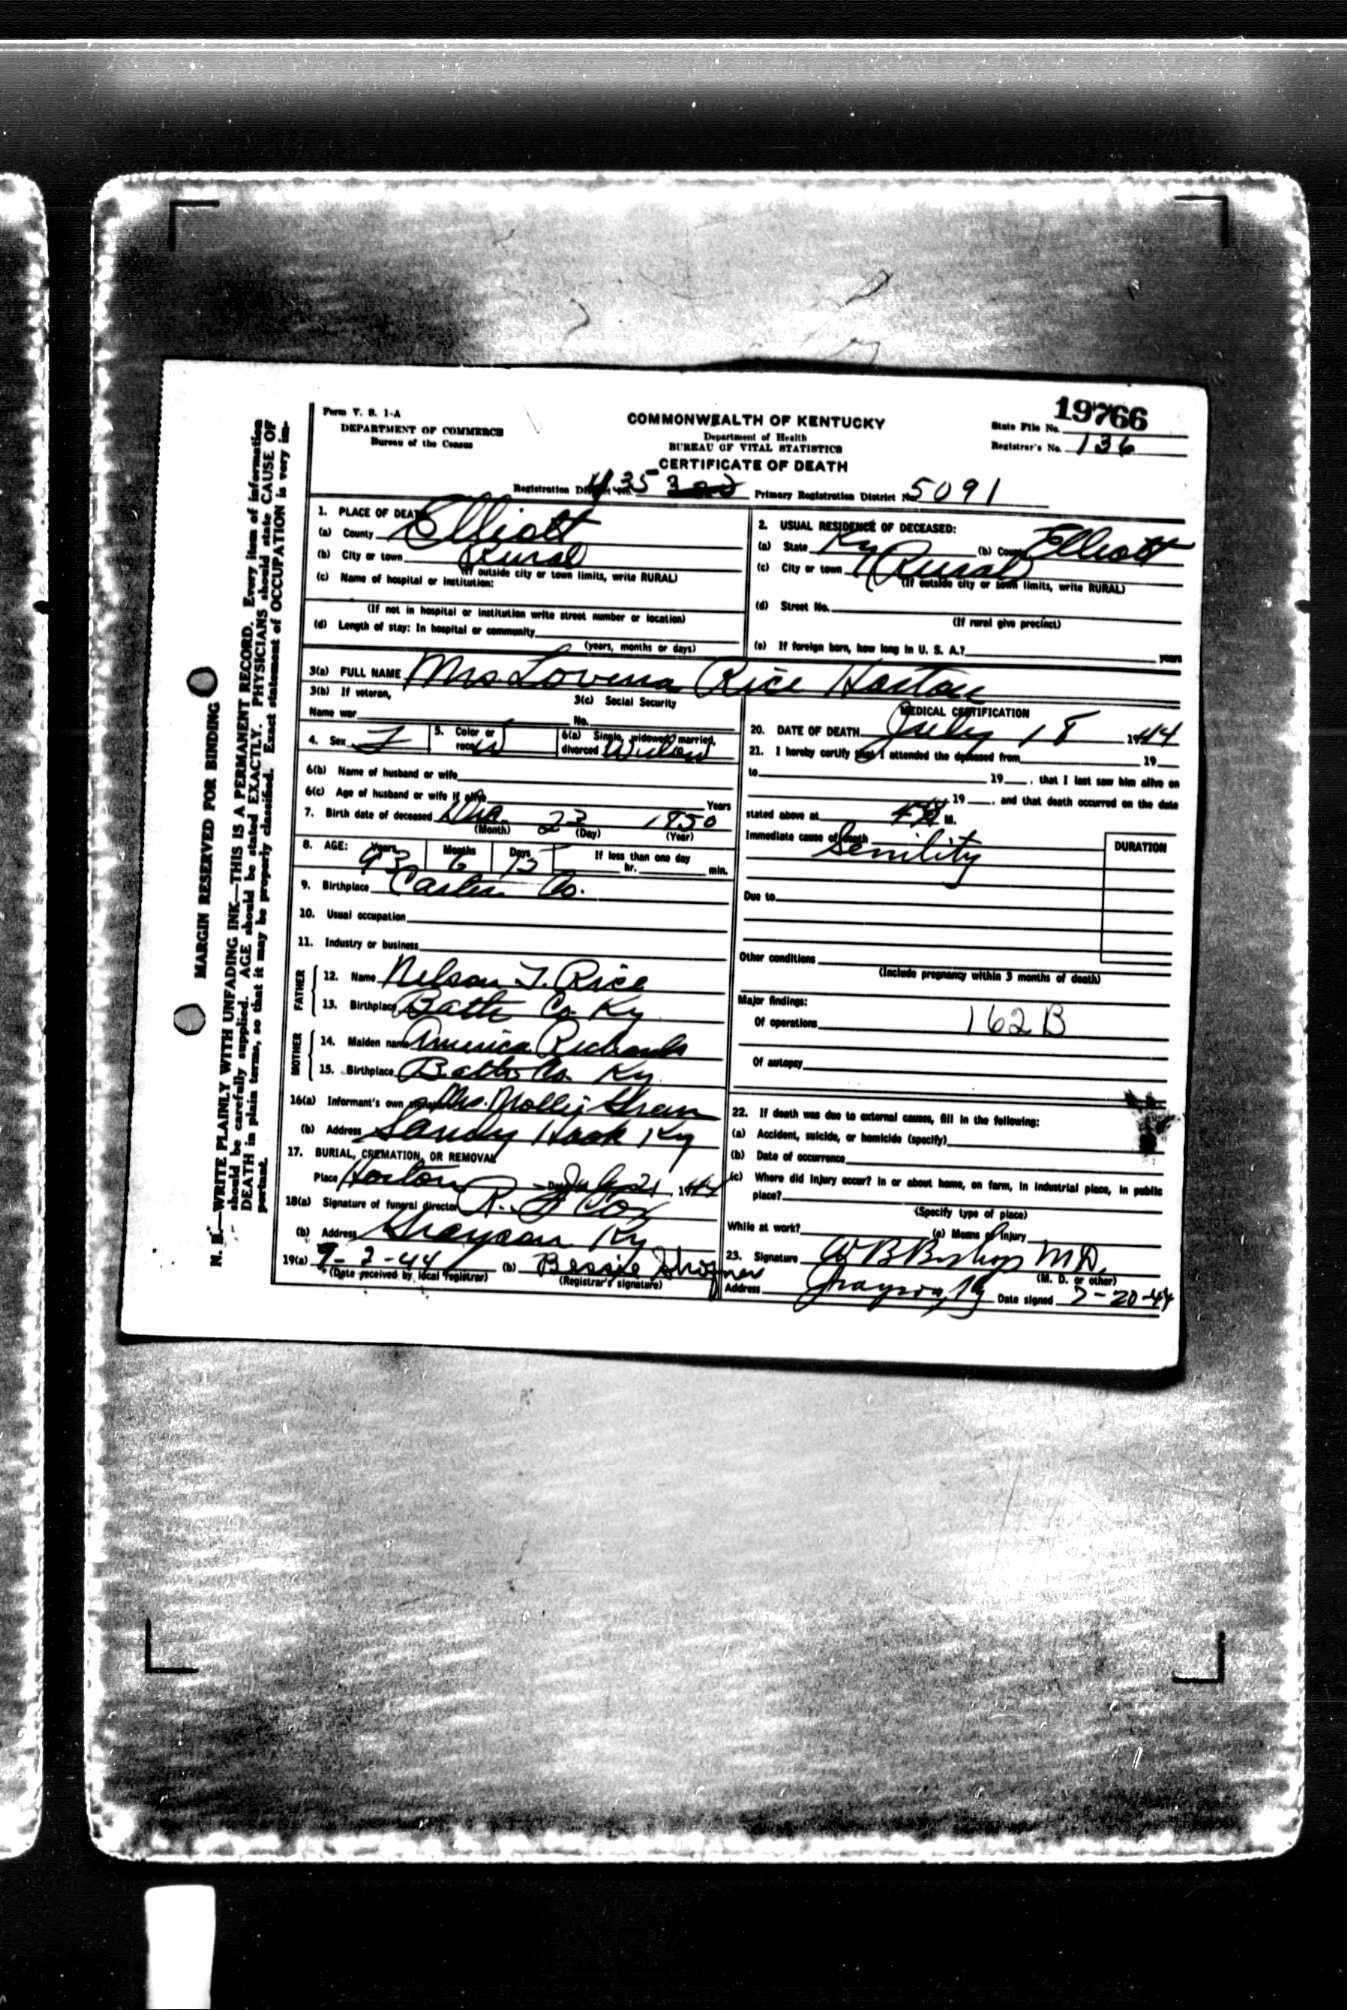 Form V. S. 1-A
DEPARTMENT OF COMMERCE
Bureau of the Census
COMMONWEALTH OF KENTUCKY
Department of Health
BUREAU OF VITAL STATISTICS
CERTIFICATE OF DEATH
19766
State File No.
Registrar's No. 136
Registration District No. 435 Primary Registration District No. 5091
1. PLACE OF DEATH
(a) County Elliott
(b) City or town Rural
(If outside city or town limits, write RURAL)
(c) Name of hospital or institution:
(If not in hospital or institution write street number or location)
(d) Length of stay: In hospital or community
(years, months or days)
2. USUAL RESIDENCE OF DECEASED:
(a) State Ky (b) County Elliott
(c) City or town Rural
(If outside city or town limits, write RURAL)
(d) Street No.
(If rural give precinct)
(e) If foreign born, how long in U. S. A.? years
3(a) FULL NAME Mrs Lovena Rice Horton
3(b) If veteran,
Name war
3(c) Social Security
No.
4. Sex F
5. Color or
race W
6(a) Single, widowed, married,
divorced Widow
6(b) Name of husband or wife
6(c) Age of husband or wife if alive Years
7. Birth date of deceased Dec. 23 1850
(Month) (Day) (Year)
8. AGE: Years Months Days If less than one day
93 6 hr. min.
9. Birthplace Carter Co.
10. Usual occupation
11. Industry or business
FATHER
12. Name Nelson T. Rice
13. Birthplace Bath Co Ky
MOTHER
14. Maiden name America Richards
15. Birthplace Bath Co. Ky.
16(a) Informant's own signature Mrs. Mollie
(b) Address Sandy Hook Ky
17. BURIAL, CREMATION, OR REMOVAL
Place Horton Date July 21 1944
18(a) Signature of funeral director R. J Cox
(b) Address Grayson Ky
19(a) 9-2-44 (b) Bessie
(Date received by local registrar) (Registrar's signature)
MEDICAL CERTIFICATION
20. DATE OF DEATH July 18 1944
21. I hereby certify that I attended the deceased from 19
to 19 , that I last saw him alive on
19 , and that death occurred on the date
stated above at M.
Immediate cause of death Senility
DURATION
Due to
Other conditions
(Include pregnancy within 3 months of death)
Major findings:
Of operations 162B
Of autopsy
22. If death was due to external causes, fill in the following:
(a) Accident, suicide, or homicide (specify)
(b) Date of occurrence
(c) Where did injury occur? in or about home, on farm, in industrial place, in public
place?
(Specify type of place)
While at work? (e) Means of injury
23. Signature W B Bishop M.D.
(M. D. or other)
Address Grayson, Ky Date signed 7-20-44
MARGIN RESERVED FOR BINDING
N. B.—WRITE PLAINLY WITH UNFADING INK—THIS IS A PERMANENT RECORD. Every item of information
should be carefully supplied. AGE should be stated EXACTLY. PHYSICIANS should state CAUSE OF
DEATH in plain terms, so that it may be properly classified. Exact statement of OCCUPATION is very im-
portant.